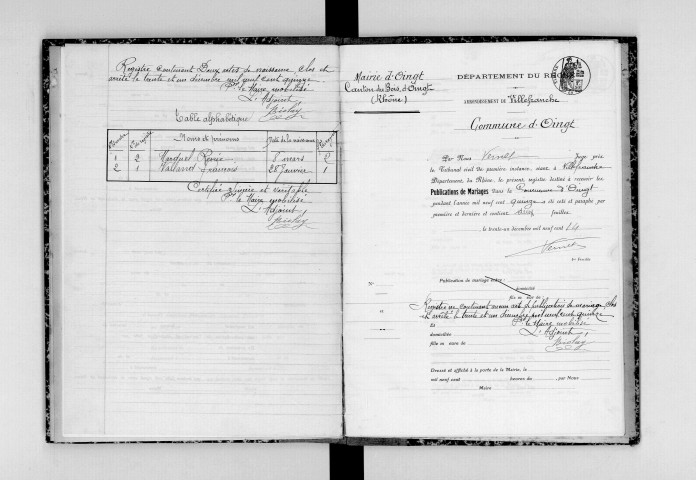 Registre contenant Deux actes de naissance clos et
arrêté le trente et un décembre mil neuf cent quinze.
Pr le Maire mobilisé
L'Adjoint
Table alphabétique
Noms et prénoms Date de la naissance
1 2 Renée 8 mars 2
2 1 Francois 28 Janvier 1
Certifié sincère et véritable
Pr le Maire mobilisé
L'Adjoint
Mairie d'Oingt
Canton du Bois d'Oingt
(Rhône)
DÉPARTEMENT DU RHÔNE
ARRONDISSEMENT DE Villefranche
Commune d'Oingt
Par Nous Vernet Juge près
le Tribunal civil de première instance, séant à Villefranche
Département du Rhône, le présent registre destiné à recevoir les
Publications de Mariages dans la Commune d'Oingt
pendant l'année mil neuf cent quinze a été coté et paraphé par
première et dernière et contient feuilles
le trente-un décembre mil neuf cent 14
Vernet
N°
Publication de mariage entre :
domicilié
fils de
Registre ne contenant aucun acte de publication de mariage, clos
et arrêté le trente et un décembre mil neuf cent quinze
Pr le Maire mobilisé
Et
L'Adjoint
domiciliée
fille de
Dressé et affiché à la porte de la Mairie, le
mil neuf cent heures du , par Nous
Maire